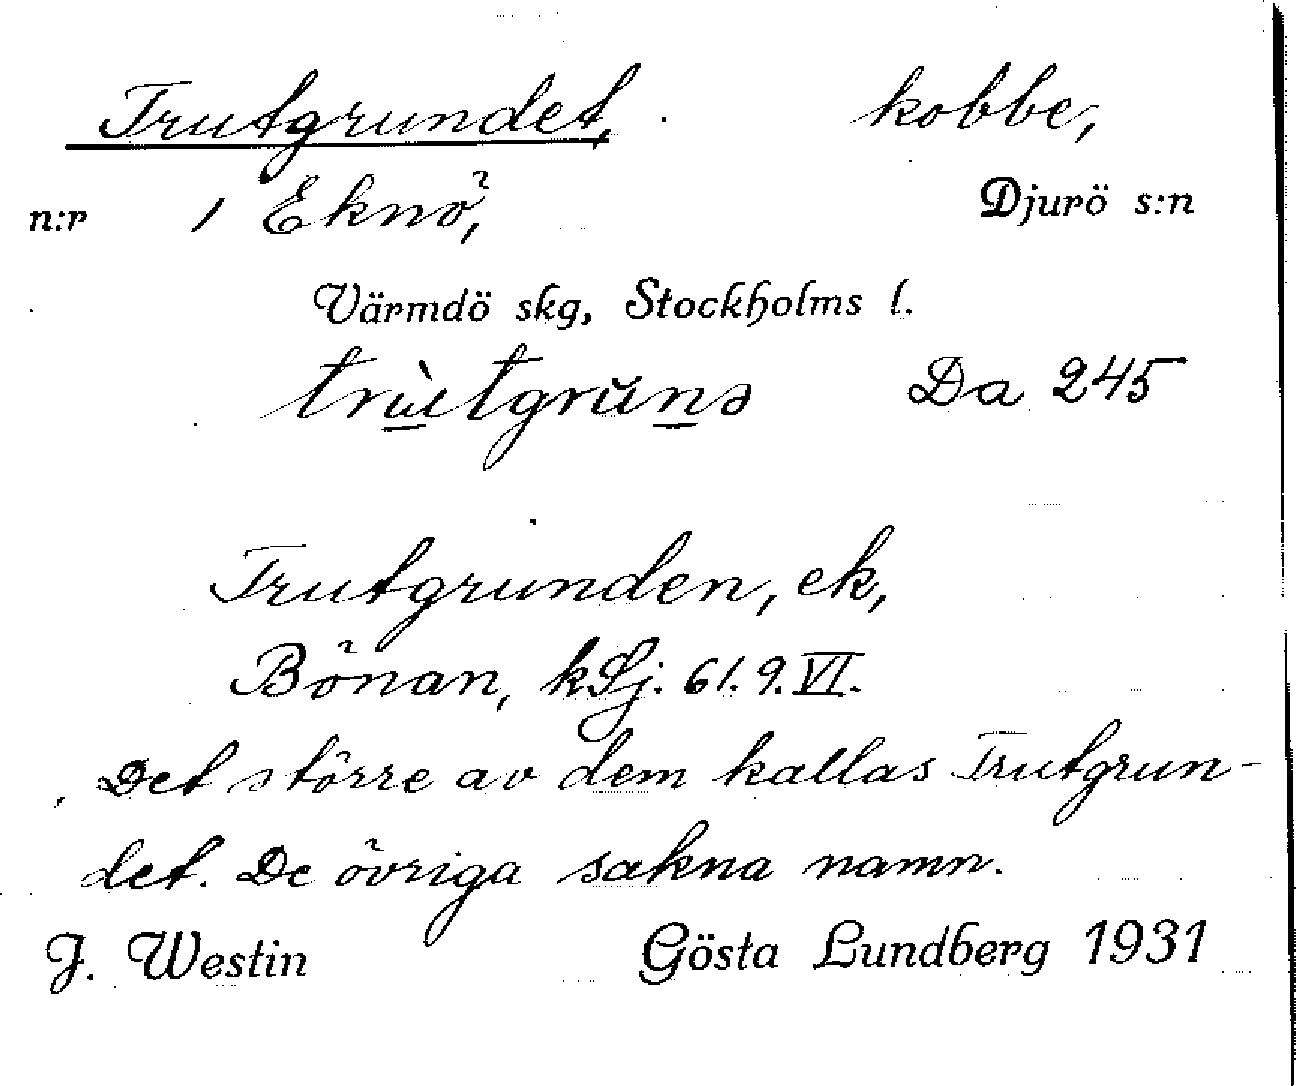 Trutgrundet, kobbe,
n:r 1 Eknö, Djurö s:n
Värmdö skg, Stockholms l.
trùtgrŭnə Da 245
Trutgrunden, ek,
Bönan, kSj. 61.9.VI.
Det större av dem kallas Trutgrun-
det. De övriga sakna namn.
J. Westin Gösta Lundberg 1931